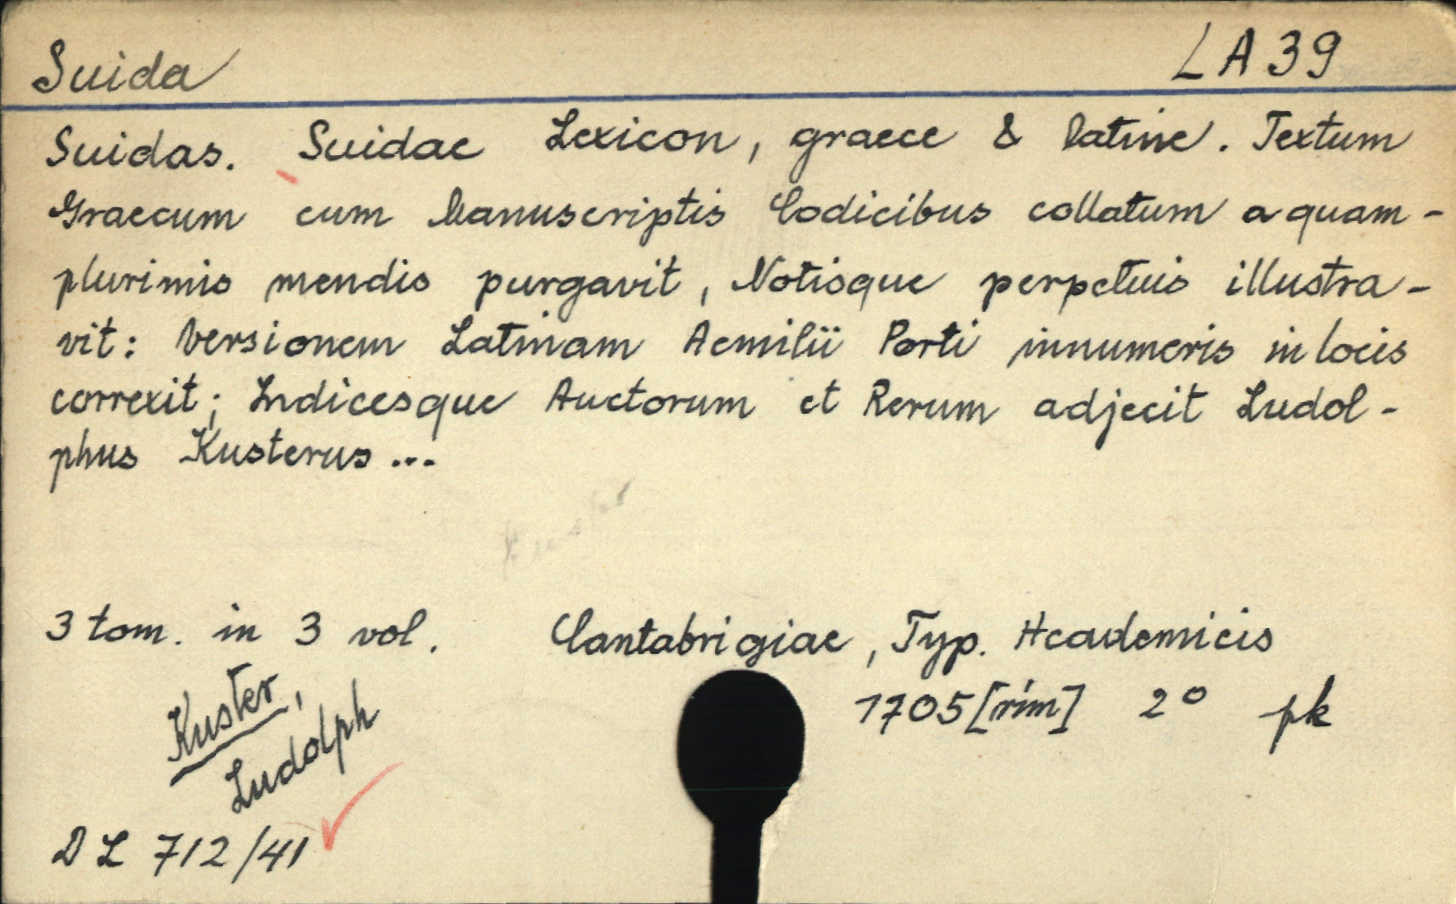 Suida
LA39
Suidas. Suidae Lexicon, graece & latine. Textum
Graecum cum Manuscriptis Codicibus collatum a quam-
plurimis mendis purgavit, Notisque perpetuis illustra-
vit: Versionem Latinam Aemilii Porti innumeris in locis
correxit; Indicesque Auctorum et Rerum adjecit Ludol-
phus Kusterus ...
3 tom. in 3 vol. Cantabrigiae, Typ. Academicis
1705 [rím] 2° pk
Kuster,
Ludolph
DL 712/41